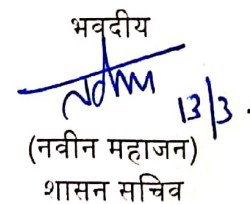 भवदीय
13/3.
(नवीन महाजन)
शासन सचिव